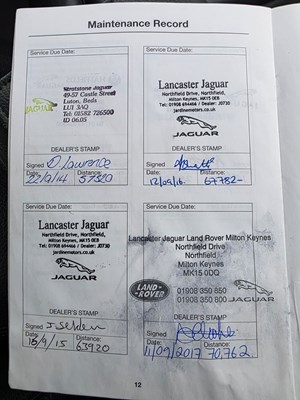 Maintenance Record
Service Due Date:
Stratstone Jaguar
49-57 Castle Street
Luton, Beds
LU1 3AQ
Tel: 01582 726500
ID 06.05
DEALER'S STAMP
Signed D Lawrence
Date: 22/9/14 Distance: 57520
Service Due Date:
Lancaster Jaguar
Northfield Drive, Northfield,
Milton Keynes, MK15 0EB
Tel: 01908 694466 / Dealer: J0730
jardinemotors.co.uk
JAGUAR
DEALER'S STAMP
Signed
Date: 12/09/16. Distance: 67782-
Service Due Date:
Lancaster Jaguar
Northfield Drive, Northfield,
Milton Keynes, MK15 0EB
Tel: 01908 694466 / Dealer: J0730
jardinemotors.co.uk
JAGUAR
DEALER'S STAMP
Signed J Selden
Date: 15/9/15 Distance: 63920
Service Due Date:
Lancaster Jaguar Land Rover Milton Keynes
Northfield Drive
Northfield
Milton Keynes
MK15 0DQ
LAND-ROVER
01908 350 800
01908 350 850
JAGUAR
DEALER'S STAMP
Signed
Date: 11/09/2017 Distance: 70,762.
12